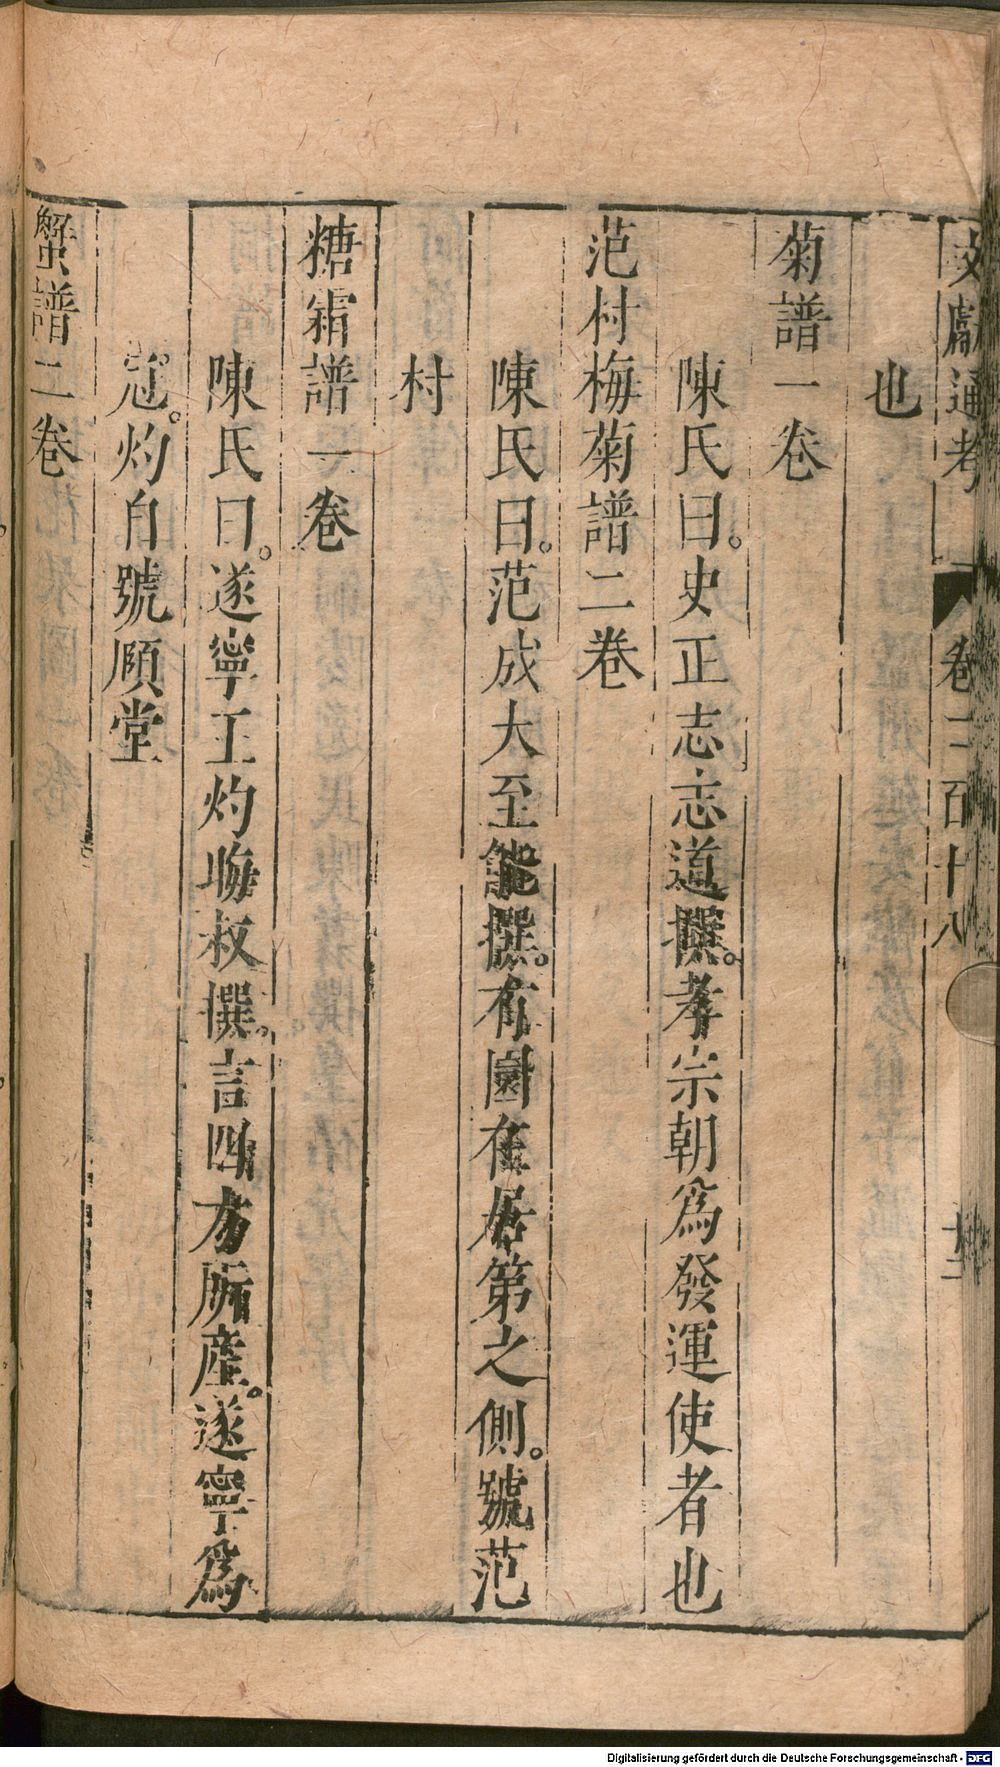 文獻通考 卷二百十八 十二
也
菊譜一卷
陳氏曰。史正志志道撰。孝宗朝爲發運使者也
范村梅菊譜二卷
陳氏曰。范成大至能撰。有園在居第之側。號范
村
糖霜譜一卷
陳氏曰。遂寧王灼晦叔撰。言四方所產。遂寧爲
冦。灼自號頤堂
蟹譜二卷
Digitalisierung gefördert durch die Deutsche Forschungsgemeinschaft - DFG